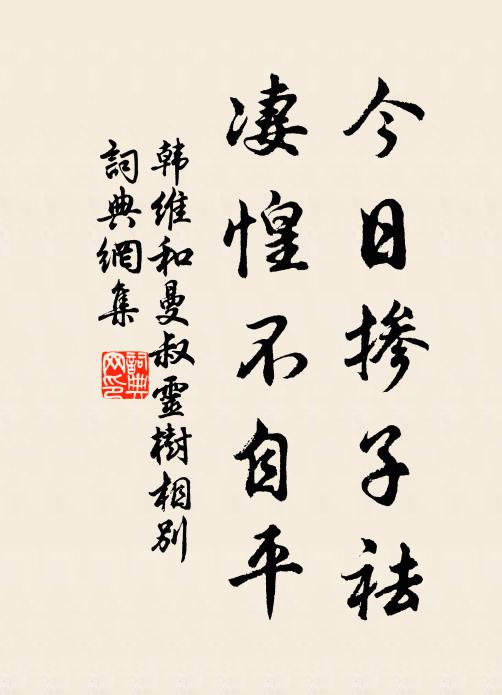 今日掺子祛
凄惶不自平
韩維和曼叔靈樹相别
詞典網集
詞典
网印